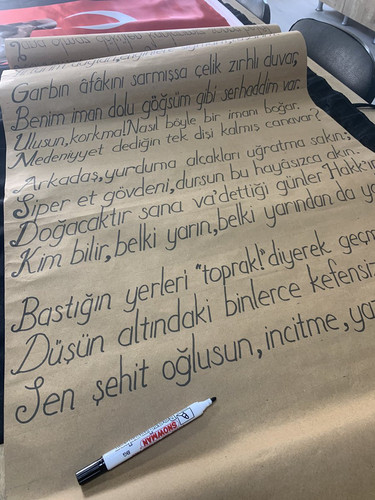 Garbın âfâkını sarmışsa çelik zırhlı duvar,
Benim iman dolu göğsüm gibi serhaddim var.
Ulusun, korkma! Nasıl böyle bir imanı boğar.
Medeniyyet dediğin tek dişi kalmış canavar?
Arkadaş, yurduma alçakları uğratma sakın;
Siper et gövdeni, dursun bu hayâsızca akın.
Doğacaktır sana va'dettiği günler Hakk'ın
Kim bilir, belki yarın, belki yarından da
Bastığın yerleri "toprak!" diyerek
Düşün altındaki binlerce
Sen şehit oğlusun, incitme,
SNOWMAN